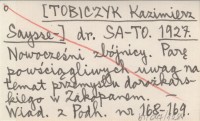 [TOBICZYK Kazimierz
Saysse-] dr. SA-TO. 1927.
Nowocześni zbójnicy. Parę
powściągliwych uwag na
temat przemysłu dorożkars-
kiego w Zakopanem. —
Wiad. z Podh. nr 168-169.